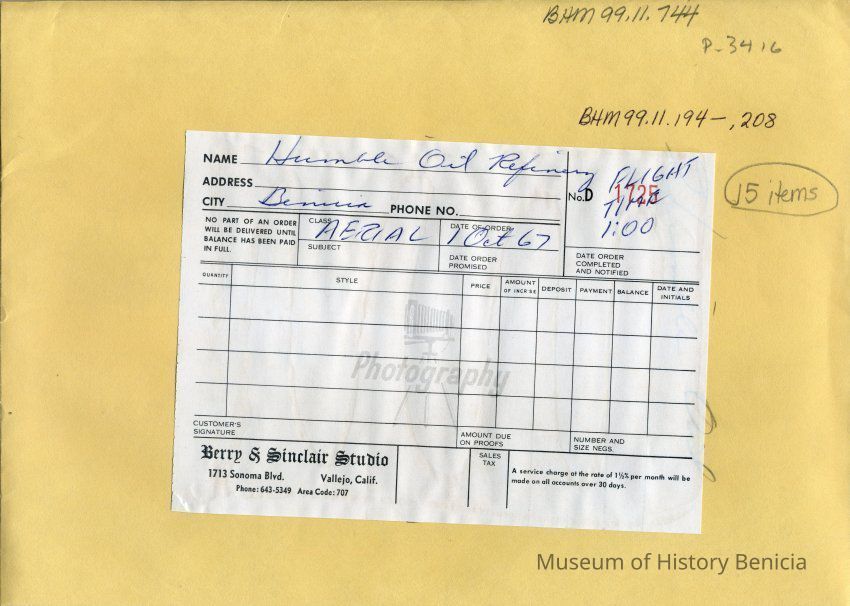 BHM 99.11.744
P-3416
BHM99.11.194-,208
15 items
NAME Humble Oil Refinery
ADDRESS
CITY Benicia PHONE NO.
No. D 1725
FLIGHT
TIME
1:00
NO PART OF AN ORDER
WILL BE DELIVERED UNTIL
BALANCE HAS BEEN PAID
IN FULL.
CLASS AERIAL
SUBJECT
DATE OF ORDER 1 Oct 67
DATE ORDER
PROMISED
DATE ORDER
COMPLETED
AND NOTIFIED
QUANTITY STYLE PRICE AMOUNT OF INCR SE DEPOSIT PAYMENT BALANCE DATE AND INITIALS
Photography
CUSTOMER'S
SIGNATURE
AMOUNT DUE
ON PROOFS
NUMBER AND
SIZE NEGS.
Berry & Sinclair Studio
1713 Sonoma Blvd. Vallejo, Calif.
Phone: 643-5349 Area Code: 707
SALES
TAX
A service charge at the rate of 1½% per month will be
made on all accounts over 30 days.
Museum of History Benicia